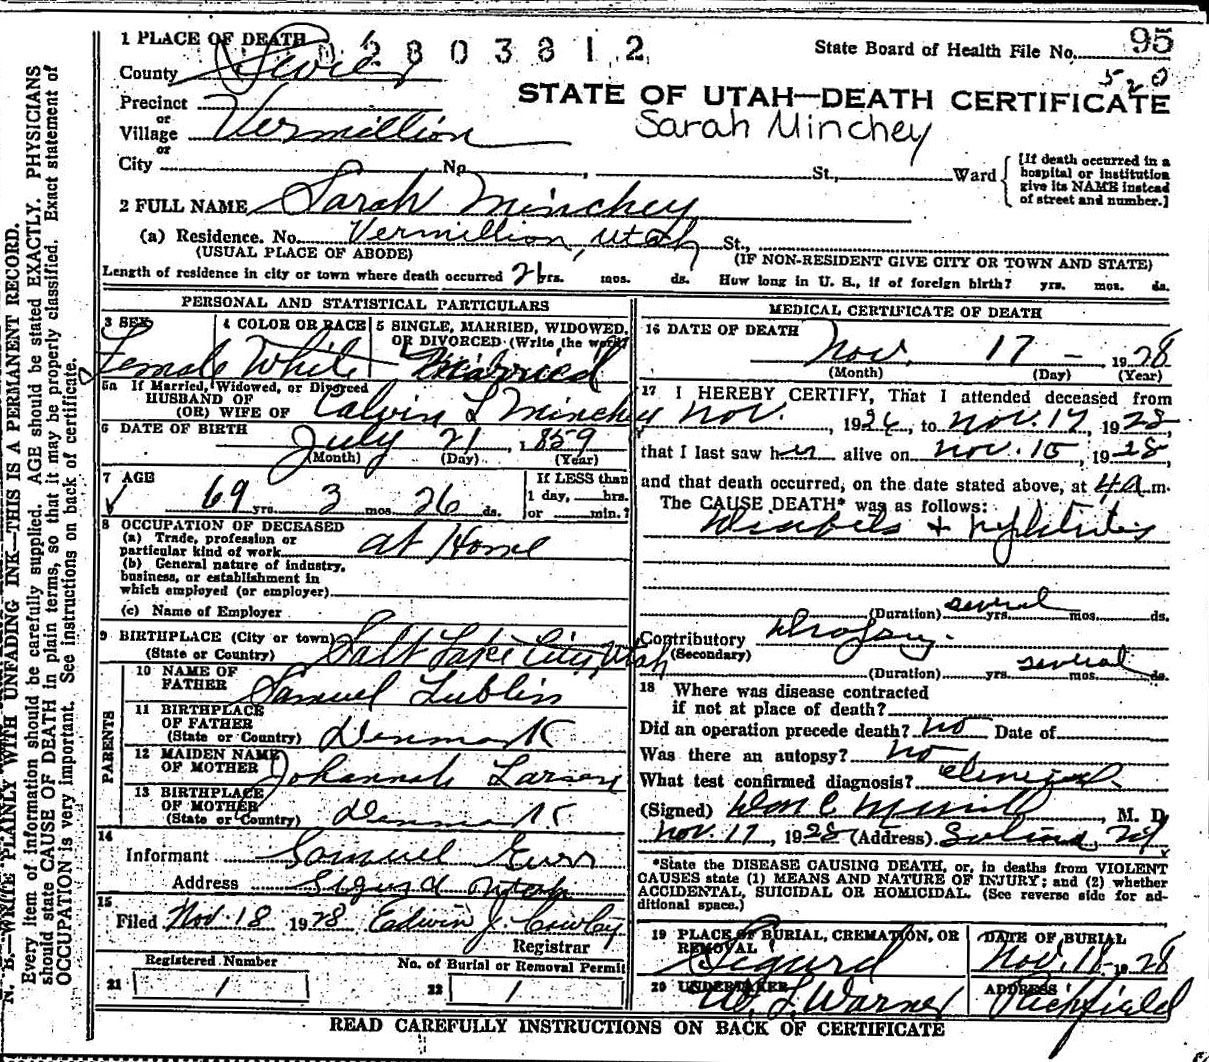 1 PLACE OF DEATH 02803812 State Board of Health File No. 95
County Sevier 520
STATE OF UTAH—DEATH CERTIFICATE
Precinct
or
Village Vermillion Sarah Minchey
or
City No. , St., Ward
[If death occurred in a
hospital or institution
give its NAME instead
of street and number.]
2 FULL NAME Sarah Minchey
(a) Residence. No. Vermillion, Utah St.,
(USUAL PLACE OF ABODE) (IF NON-RESIDENT GIVE CITY OR TOWN AND STATE)
Length of residence in city or town where death occurred 26 yrs. mos. ds. How long in U. S., if of foreign birth? yrs. mos. ds.
PERSONAL AND STATISTICAL PARTICULARS
3 SEX 4 COLOR OR RACE 5 SINGLE, MARRIED, WIDOWED,
OR DIVORCED (Write the word)
Female White Married
5a If Married, Widowed, or Divorced
HUSBAND OF
(OR) WIFE OF Calvin L Minchey
6 DATE OF BIRTH July 21, 1859
(Month) (Day) (Year)
7 AGE 69 yrs. 3 mos. 26 ds.
If LESS than
1 day, hrs.
or min.?
8 OCCUPATION OF DECEASED
(a) Trade, profession or
particular kind of work at Home
(b) General nature of industry,
business, or establishment in
which employed (or employer)
(c) Name of Employer
9 BIRTHPLACE (City or town) Salt Lake City, Utah
(State or Country)
PARENTS
10 NAME OF
FATHER Samuel Lublin
11 BIRTHPLACE
OF FATHER
(State or Country) Denmark
12 MAIDEN NAME
OF MOTHER Johannah Larsen
13 BIRTHPLACE
OF MOTHER
(State or Country) Denmark
14
Informant Samuel
Address Sigurd Utah
15
Filed Nov. 18 1928 Edwin J. Cowley
Registrar
Registered Number No. of Burial or Removal Permit
21 1 22 1
MEDICAL CERTIFICATE OF DEATH
16 DATE OF DEATH
Nov. 17 - , 1928
(Month) (Day) (Year)
17 I HEREBY CERTIFY, That I attended deceased from
Nov. , 1926, to Nov. 17, 1928,
that I last saw her alive on Nov. 15, 1928,
and that death occurred, on the date stated above, at 4 A m.
The CAUSE DEATH* was as follows:
+ nephritis
(Duration) several yrs. mos. ds.
Contributory Dropsy.
(Secondary)
(Duration) yrs. several mos. ds.
18 Where was disease contracted
if not at place of death?
Did an operation precede death? no Date of
Was there an autopsy? no
What test confirmed diagnosis? clinical
(Signed) Don C Merrill, M. D.
Nov. 17, 1928 (Address) Salina,
*State the DISEASE CAUSING DEATH, or, in deaths from VIOLENT
CAUSES state (1) MEANS AND NATURE OF INJURY; and (2) whether
ACCIDENTAL, SUICIDAL OR HOMICIDAL. (See reverse side for ad-
ditional space.)
19 PLACE OF BURIAL, CREMATION, OR
REMOVAL DATE OF BURIAL
Sigurd Nov. 18 - 1928
20 UNDERTAKER ADDRESS
W. L. Warner Richfield
READ CAREFULLY INSTRUCTIONS ON BACK OF CERTIFICATE
N. B.—WRITE PLAINLY WITH UNFADING INK—THIS IS A PERMANENT RECORD.
Every item of information should be carefully supplied. AGE should be stated EXACTLY. PHYSICIANS
should state CAUSE OF DEATH in plain terms, so that it may be properly classified. Exact statement of
OCCUPATION is very important. See instructions on back of certificate.